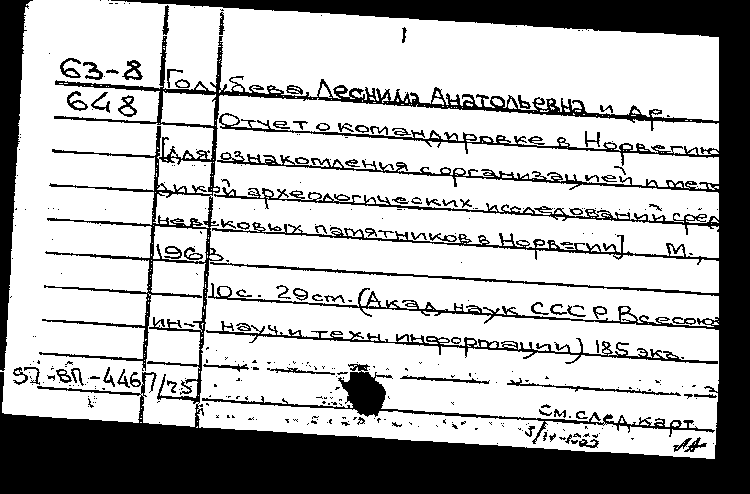 1
63-8 Голубева, Леонила Анатольевна и др.
648 Отчет о командировке в Норвегию
[для ознакомления с организацией и мето
дикой археологических исследований сред
невековых памятников в Норвегии]. М.,
1963.
10с. 29cm. (Акад. наук СССР. Всесоюз
ин-т науч. и техн. информации) 185 экз.
57-ВП-4467/25
См. след. карт.